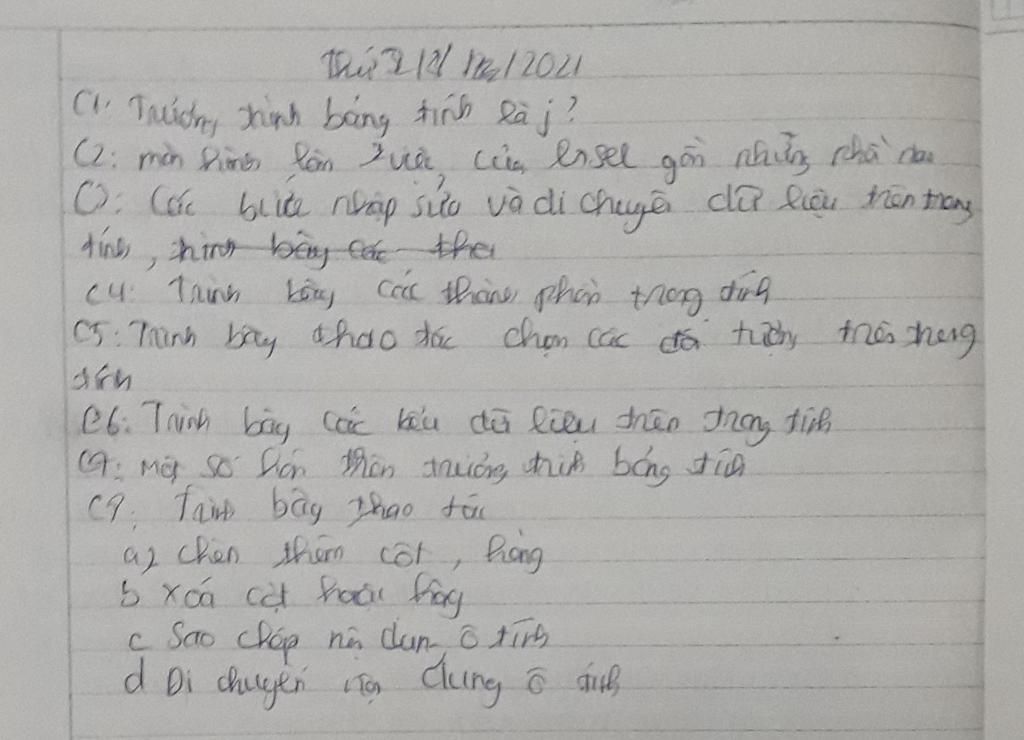 C1: Trương trình bảng tính là j?
C2: màn hình làn việc của Ensel gồn những phầ nào
C3: Các bước nhập sửa và di chuyể dữ liệu trên trang
tính, trình bày các thao
C4: Trình bày các thành phần trang tính
C5: Trình bày thao tác chọn các đối tượng trên trang
tính
C6: Trình bày các kiểu dữ liệu trên trang tính
một số hàn trên trương trình bảng tính
Trình bày thao tác
a) chèn thêm cột, hàng
b xoá cột hoặc hàng
c Sao chép nội dun ô tính
d Di chuyển nội dung ô tính